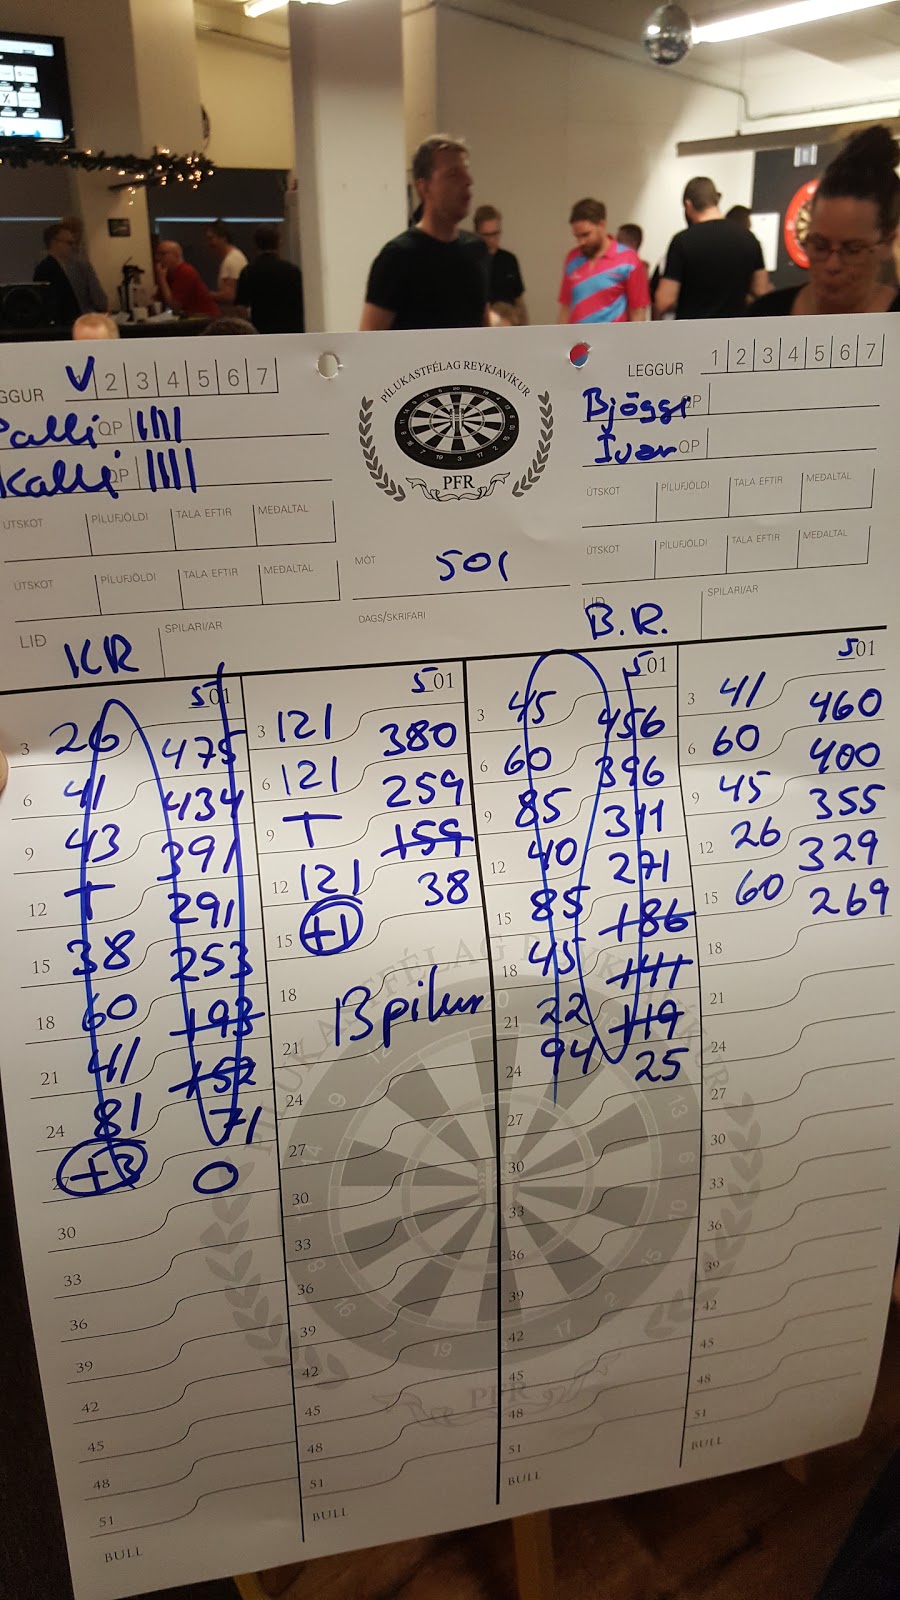 GGUR 2 3 4 5 6 7
Palli QP
Kalli QP
ÚTSKOT PÍLUFJÖLDI TALA EFTIR MEÐALTAL
ÚTSKOT PÍLUFJÖLDI TALA EFTIR MEÐALTAL
LIÐ KR SPILARI/AR
PÍLUKASTFÉLAG REYKJAVÍKUR
PFR
MÓT 501
DAGS/SKRIFARI
LEGGUR 1 2 3 4 5 6 7
Bjöggi QP
Ívar QP
ÚTSKOT PÍLUFJÖLDI TALA EFTIR MEÐALTAL
ÚTSKOT PÍLUFJÖLDI TALA EFTIR MEÐALTAL
LIÐ B.R. SPILARI/AR
501
3 26 475
6 41 434
9 43 391
12 T 291
15 38 253
18 60 193
21 41 152
24 81 71
27 +3 0
30
33
36
39
42
45
48
51
BULL
501
3 121 380
6 121 259
9 T 159
12 121 38
15 +1
18
13 pílur
21
24
27
30
33
36
39
42
45
48
51
BULL
501
3 45 456
6 60 396
9 85 311
12 40 271
15 85 186
18 45 141
21 22 119
24 94 25
27
30
33
36
39
42
45
48
51
BULL
501
3 41 460
6 60 400
9 45 355
12 26 329
15 60 269
18
21
24
27
30
33
36
39
42
45
48
51
BULL
PÍLUKASTFÉLAG REYKJAVÍKUR
PFR